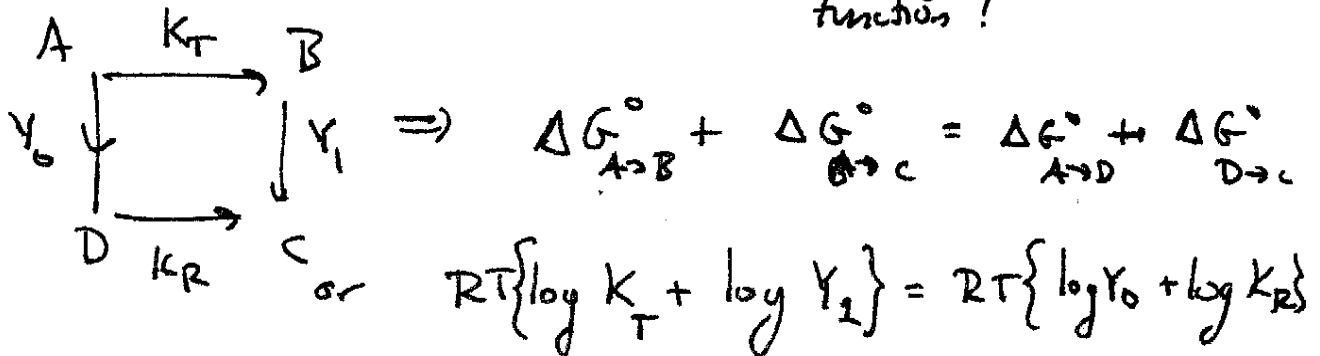 function!
A K_T B
Y_0 Y_1 ⇒ ΔG°_{A→B} + ΔG°_{B→C} = ΔG°_{A→D} + ΔG°_{D→C}
D K_R C
or RT{log K_T + log Y_1} = RT{log Y_0 + log K_R}